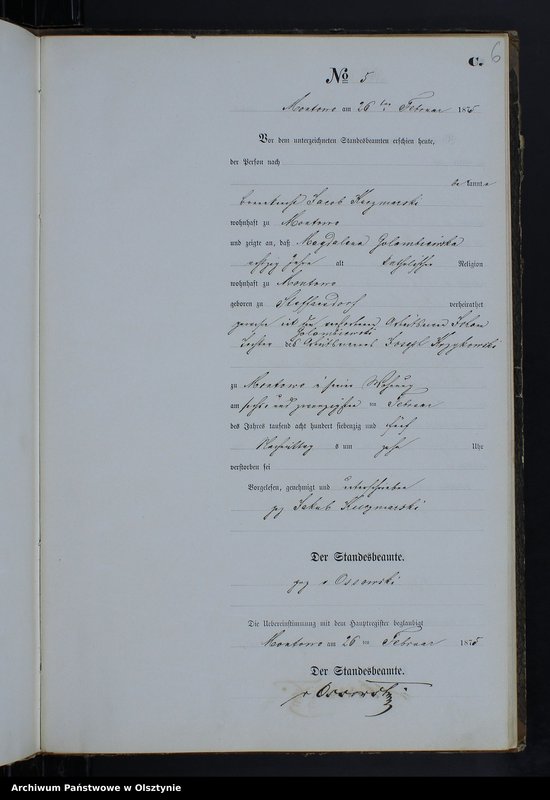 C. 6
No 5
Montowo am 26 ten Februar 1875
Vor dem unterzeichneten Standesbeamten erschien heute,
der Person nach
be kannt.
Jacob Kuczmarski
wohnhaft zu Montowo
und zeigte an, daß Magdalena Golambiewska
achtzig Jahre alt katholischer Religion
wohnhaft zu Montowo
geboren zu Steffensdorf verheirathet
gewesen mit dem verstorbenen Arbeitsmann Johan
Golambiewski
Tochter des Arbeitsmanns Joseph
zu Montowo in seiner Wohnung
am sechs und zwanzigsten ten Februar
des Jahres tausend acht hundert siebenzig und fünf
Nachmittag s um zehn Uhr
verstorben sei
Vorgelesen, genehmigt und unterschrieben
gez Jakob Kuczmarski
Der Standesbeamte.
gez v Ossowski
Die Uebereinstimmung mit dem Hauptregister beglaubigt
Montowo am 26 ten Februar 1875
Der Standesbeamte.
v Ossowski
Archiwum Państwowe w Olsztynie